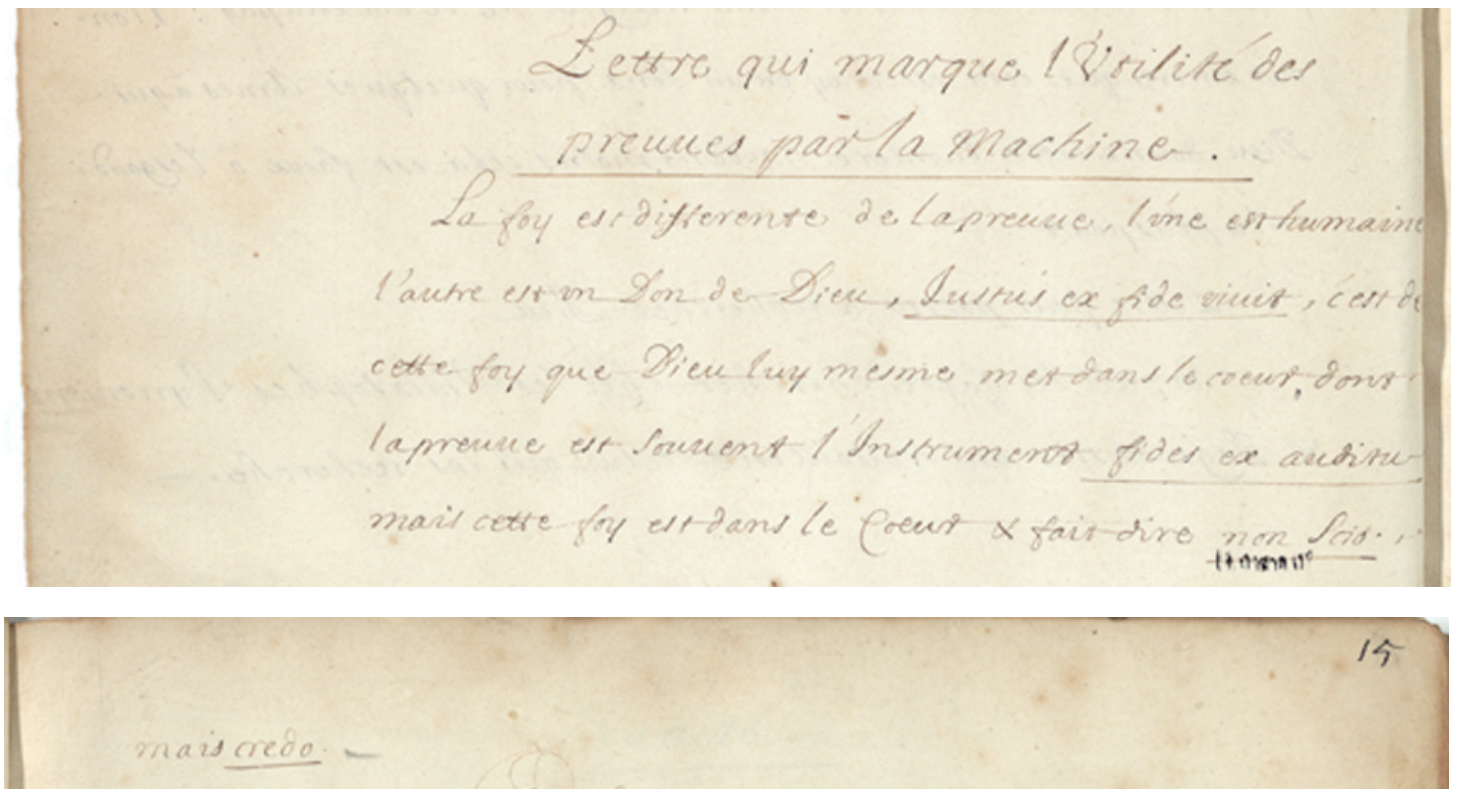 Lettre qui marque l'Vtilité des
preuues par la Machine.
La foy est differente de la preuue, l'vne est humaine
l'autre est vn Don de Dieu, Iustus ex fide viuit, c'est de
cette foy que Dieu luy mesme met dans le coeur, dont
la preuue est souuent l'Instrument fides ex auditu
mais cette foy est dans le Coeur & fait dire non Scio.
15
mais credo.